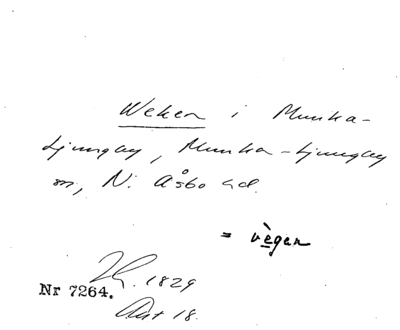 Weken i Munka-
Ljungby, Munka-Ljungby
sn, N. Åsbo hd.
= vègen
1829
Nr 7264.
Akt 18.